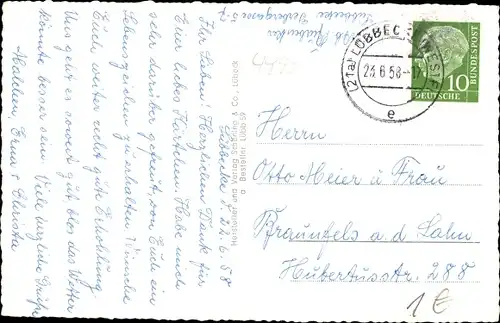 Lübbecke, d. 22.6.58
Ihr Lieben! Herzlichen Dank für
Euer liebes Kärtchen. Habe mich
sehr darüber gefreut, von Euch ein
Lebenszeichen zu erhalten. Wünsche
Euch weiter recht gute Erholung.
Uns geht es soweit gut, blos das Wetter
könnte besser sein. Viele herzliche Grüße
Lübbecke
(21a) LÜBBECKE (WESTF)
23.6.58-17
e
DEUTSCHE BUNDESPOST
10
Hersteller und Verlag Schöning & Co., Lübeck
Bestellnr. Lübb 59
Herrn
Otto Meier u Frau
Braunfels a. d. Lahn
Hubertusstr. 288
1€